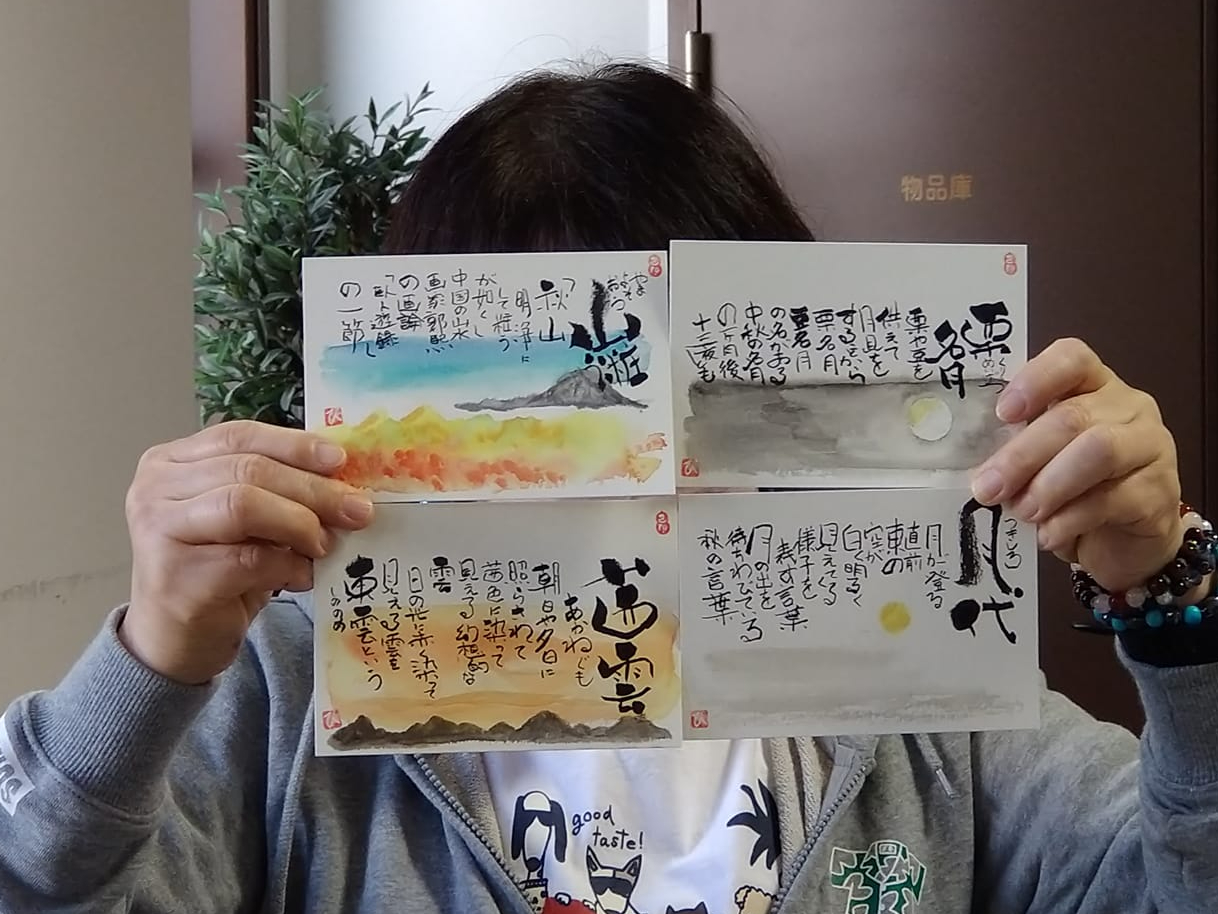 山粧う
やまよそおう
「秋山
明浄に
して粧う
が如く」
中国の山水
画家郭熙
の画論
「臥遊録」
の一節
ひ
栗名月
くりめいげつ
栗や豆を
供えて
月見を
するから
栗名月
豆名月
の名がある
中秋の名月
の一ヶ月後
十三夜も
ひ
茜雲
あかねぐも
朝日や夕日に
照らされて
茜色に染って
見える幻想的な
雲
日の光に赤く染って
見える雲を
東雲という
しののめ
ひ
月代
つきしろ
月が登る
直前
東の
空が
白く明るく
見えてくる
様子を
表す言葉
月の出を
待ちわびている
秋の言葉
ひ
物品庫
good
taste!